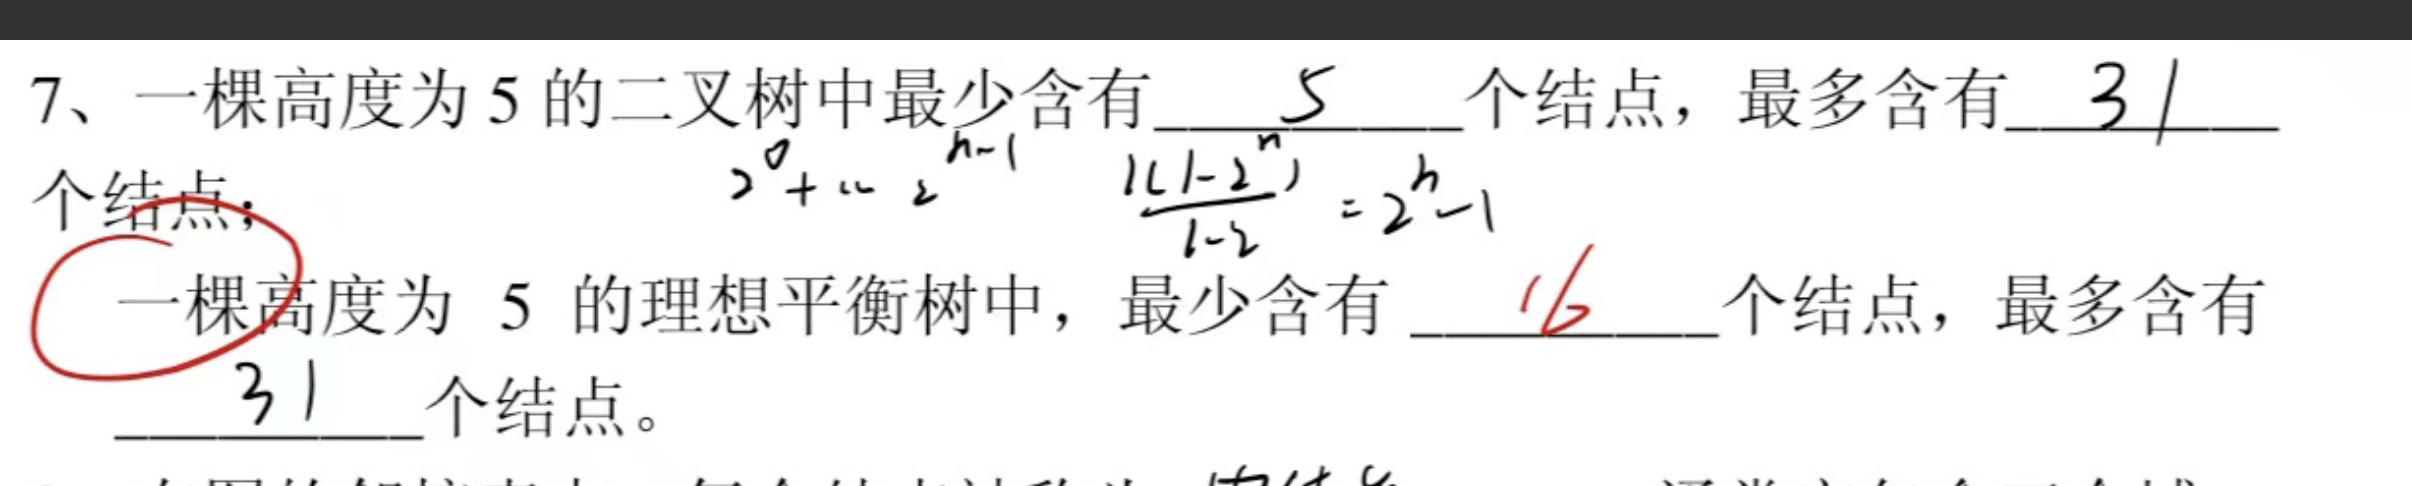 7、一棵高度为 5 的二叉树中最少含有 5 个结点，最多含有 31
个结点；
2⁰+ ‥ 2ⁿ⁻¹ 1(1-2ⁿ)/1-2 = 2ⁿ-1
一棵高度为 5 的理想平衡树中，最少含有 16 个结点，最多含有
31 个结点。